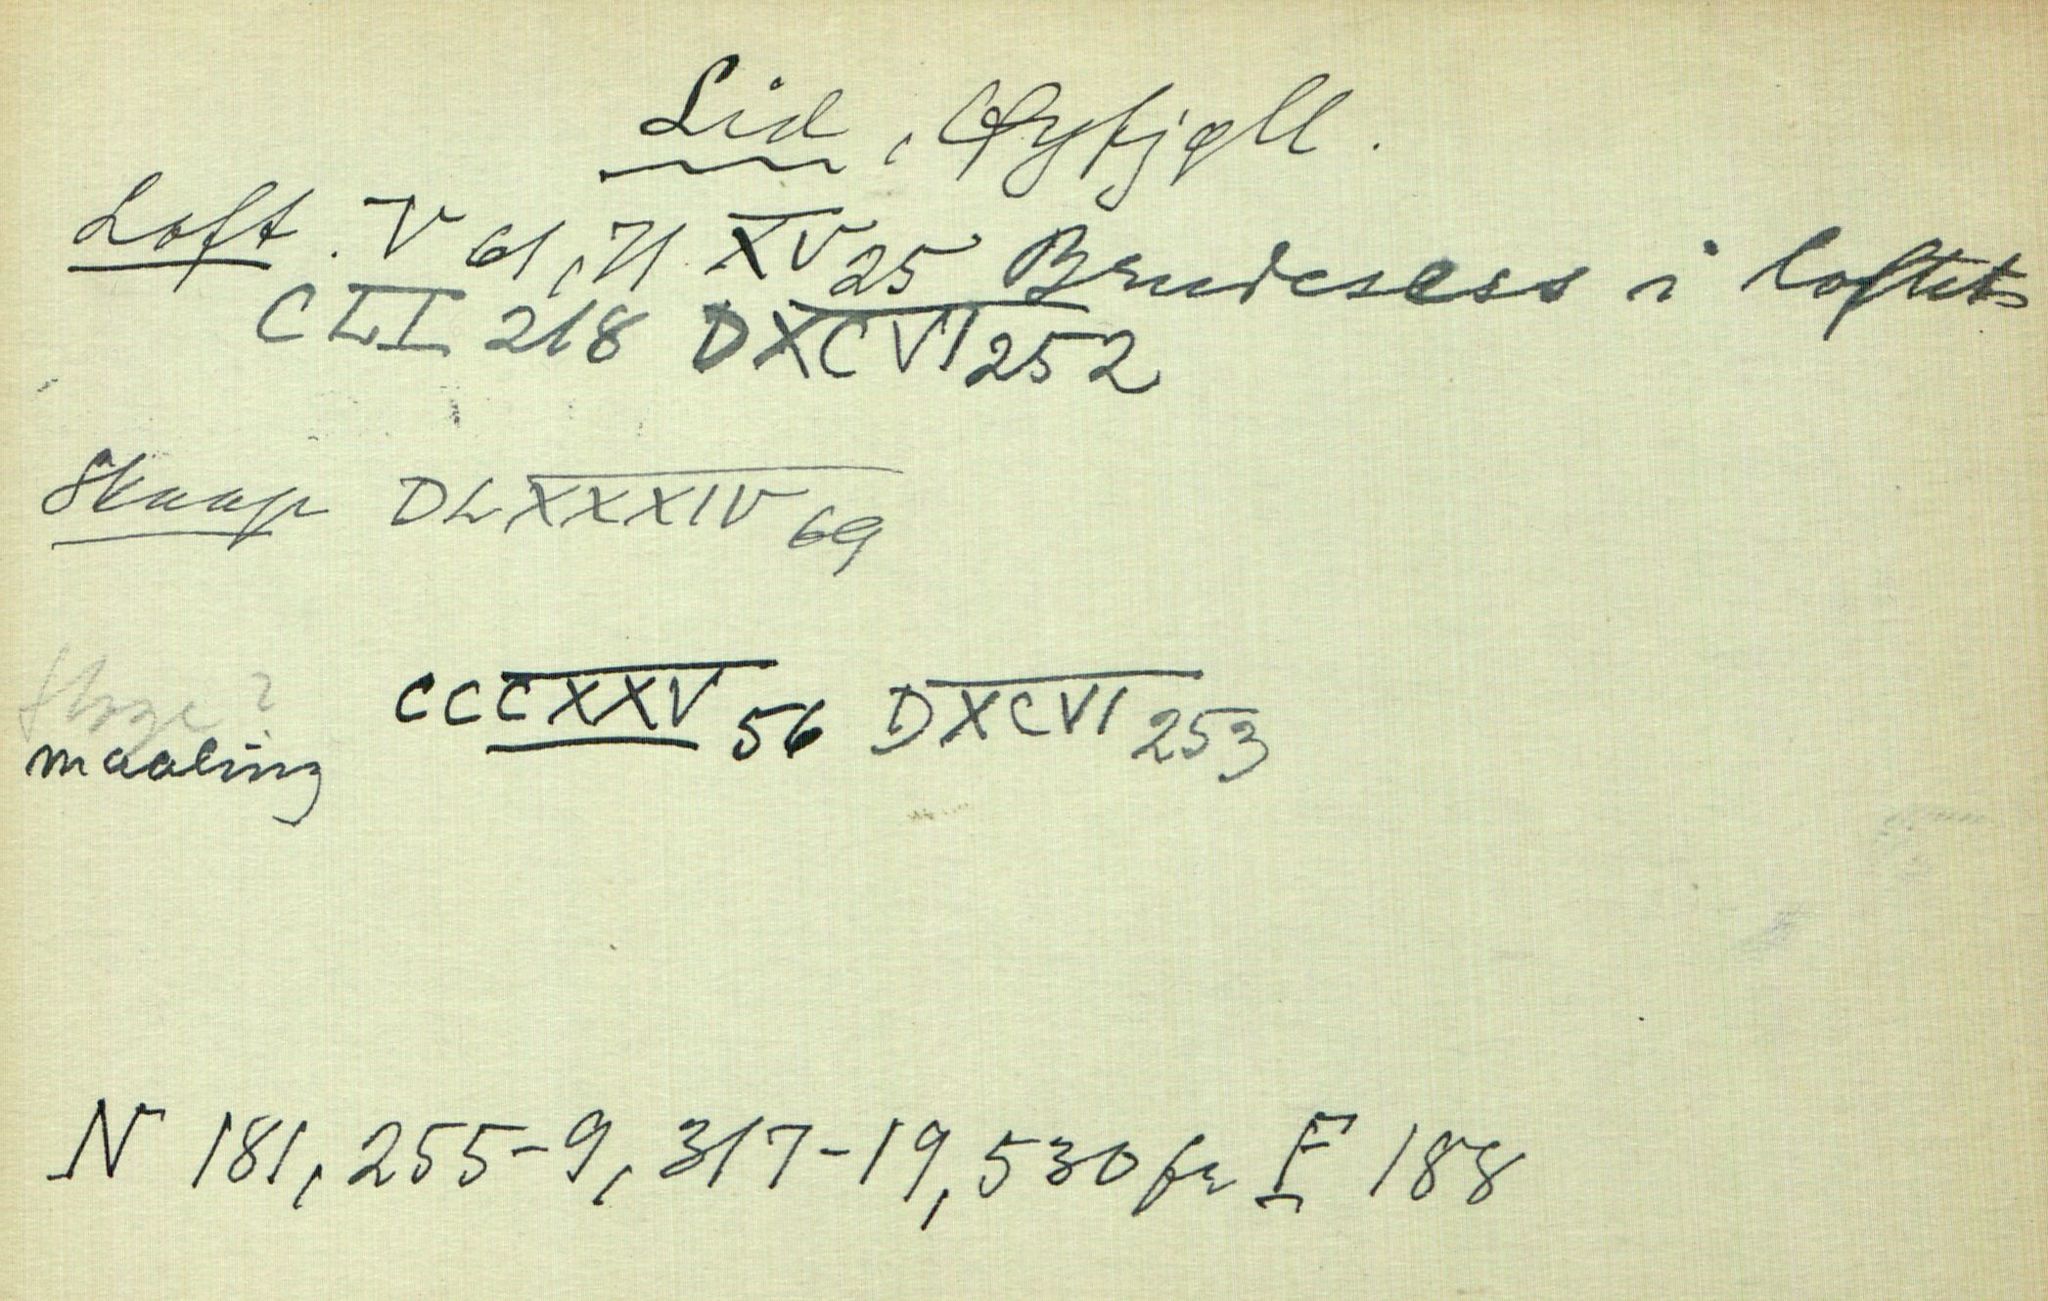 Lid, Øyfjell.
Loft. V 61, 71 XV 25 Brudesess i loftet
CLI 218 DXCVI 252
Skaap DLXXXIV 69
CCCXXV 56 DXCVI 253
maaling
N 181, 255-9, 317-19, 530 fr F 188